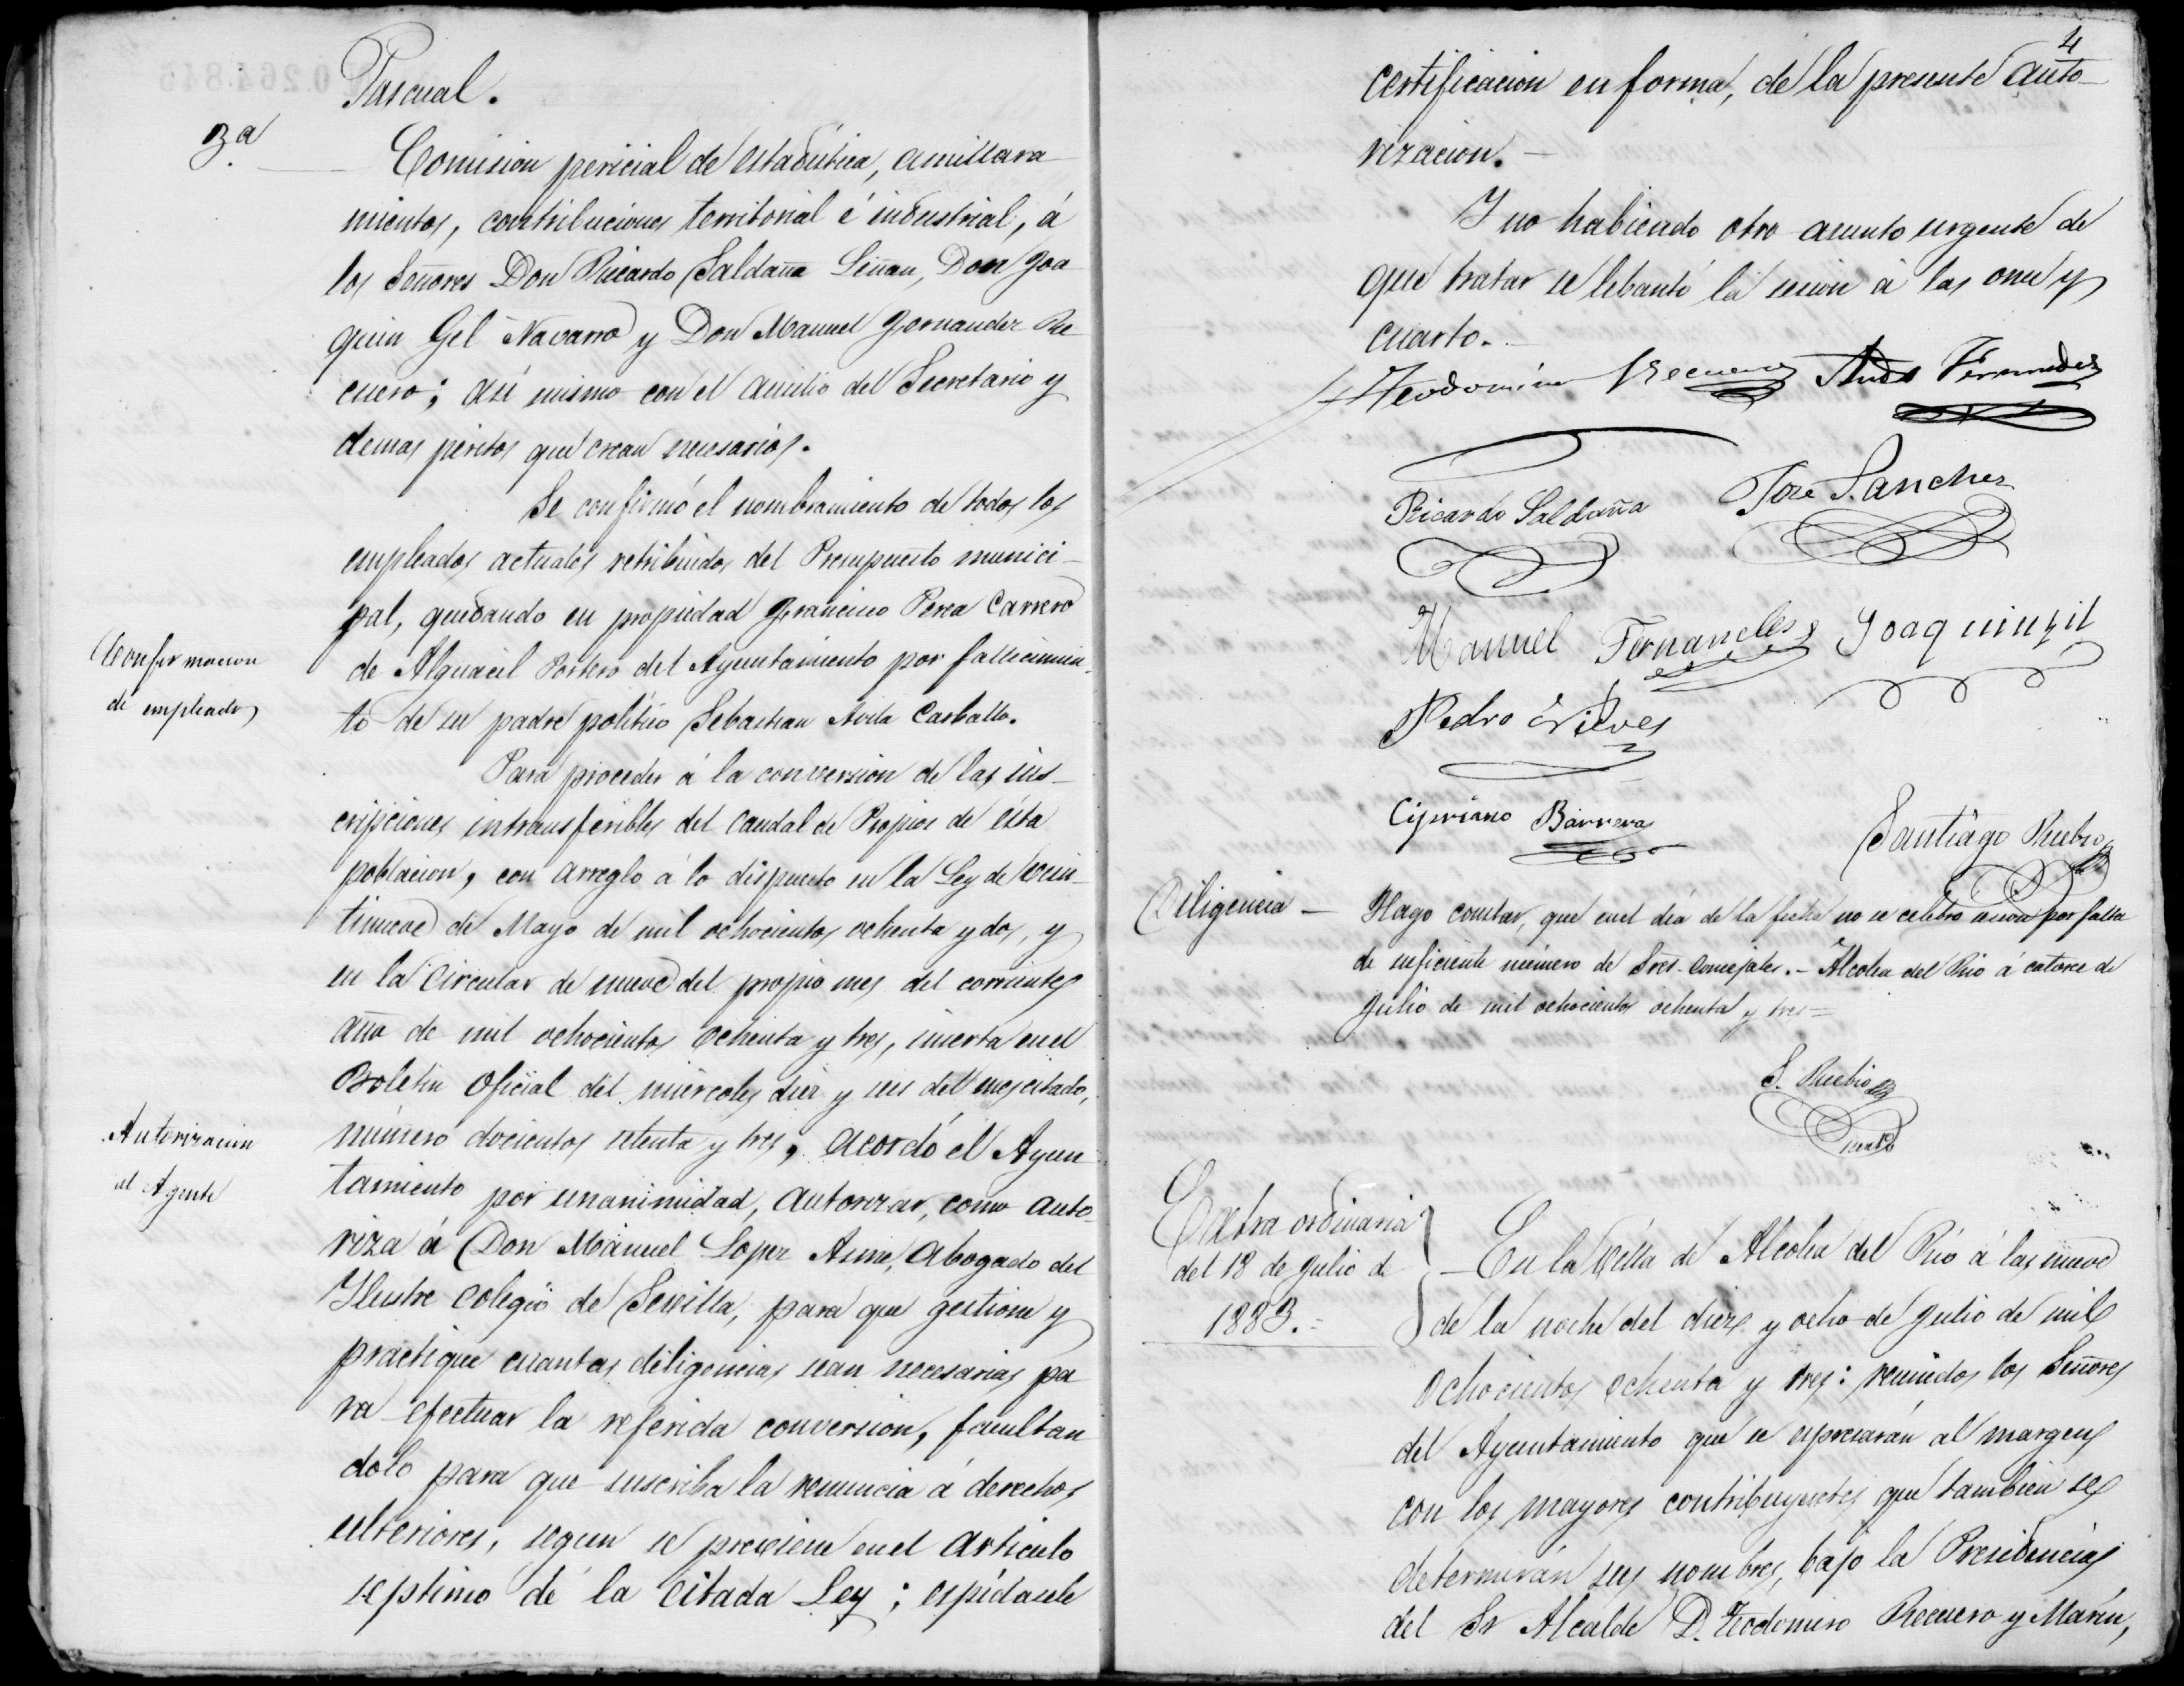 Pascual.
3ª
Comision pericial de estadística, amillara
mientos, contribuciones territorial é industrial, á
los Señores Don Ricardo Saldaña Liñan, Don Joa
quin Gel Navarro y Don Manuel Fernandez Re
cuero; así mismo con el ausilio del Secretario y
demas peritos que crean necesarios.
Se confirmó el nombramiento de todos los
empleados actuales retribuidos del Presupuesto munici-
pal, quedando en propiedad Francisco Perea Carrero
Confirmacion
de empleados
de Alguacil Portero del Ayuntamiento por fallecimien-
to de su padre político Sebastian Avila Carballo.
Para proceder á la conversion de las ins-
cripciones intransferibles del Caudal de Propios de ésta
poblacion, con arreglo á lo dispuesto en la Ley de vein-
tinueve de Mayo de mil ochocientos ochenta y dos, y
en la Circular de nueve del propio mes del corriente
año de mil ochocientos ochenta y tres, inserta en el
Boletin Oficial del miércoles diez y seis del mes citado,
Autorizacion
al Agente
número docientos setenta y tres, acordó el Ayun-
tamiento por unanimidad, autorizar, como auto-
riza á Don Manuel Lopez Asme, Abogado del
Ilustre Colegio de Sevilla, para que gestione y
practique cuantas diligencias sean necesarias pa
ra efectuar la referida conversion, facultan
dolo para que suscriba la renuncia á derechos
ulteriores, segun se previene en el Artículo
septimo de la citada Ley; espídasele
4
certificacion en forma, de la presente auto-
rizacion.-
Y no habiendo otro asunto urgente de
que tratar se lebantó la sesion á las once y
cuarto.-
Teodomiro Recuero Andres Fernandez
Ricardo Saldaña Jose Sanchez
Manuel Fernandes Joaquin gil
Pedro Nieves
Cipriano Barrera
Santiago Rubio
Diligencia - Hago constar, que en el dia de la fecha no se celebro sesion por falta
de suficiente número de Sres. Concejales.- Alcolea del Rio á catorce de
Julio de mil ochocientos ochenta y tres=
S. Rubio
Extra ordinaria
del 18 de Julio de
1883.=
En la Villa de Alcolea del Rio á las nueve
de la noche del diez y ocho de Julio de mil
ochocientos ochenta y tres: reunidos los Señores
del Ayuntamiento que se espresarán al margen
con los mayores contribuyentes que tambien se
determinarán sus nombres, bajo la Presidencia
del Sr Alcalde D. Teodomiro Recuero y Marin,